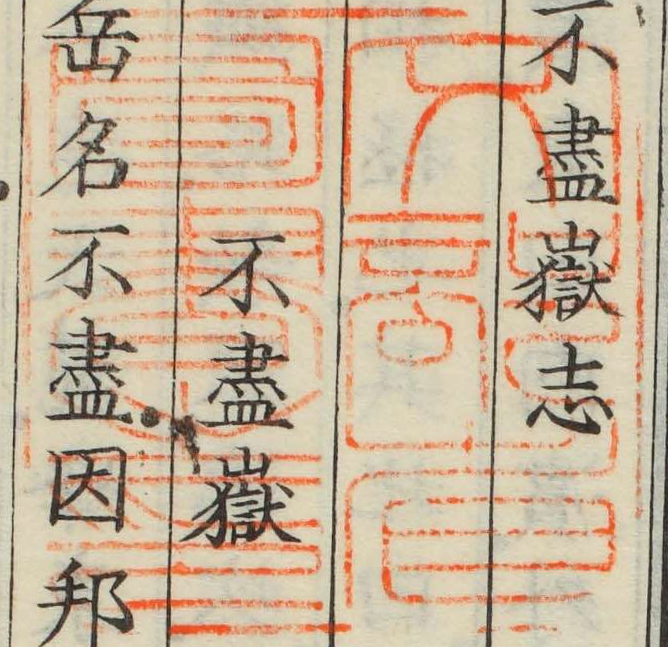 不盡嶽志
不盡嶽
岳名不盡因邦